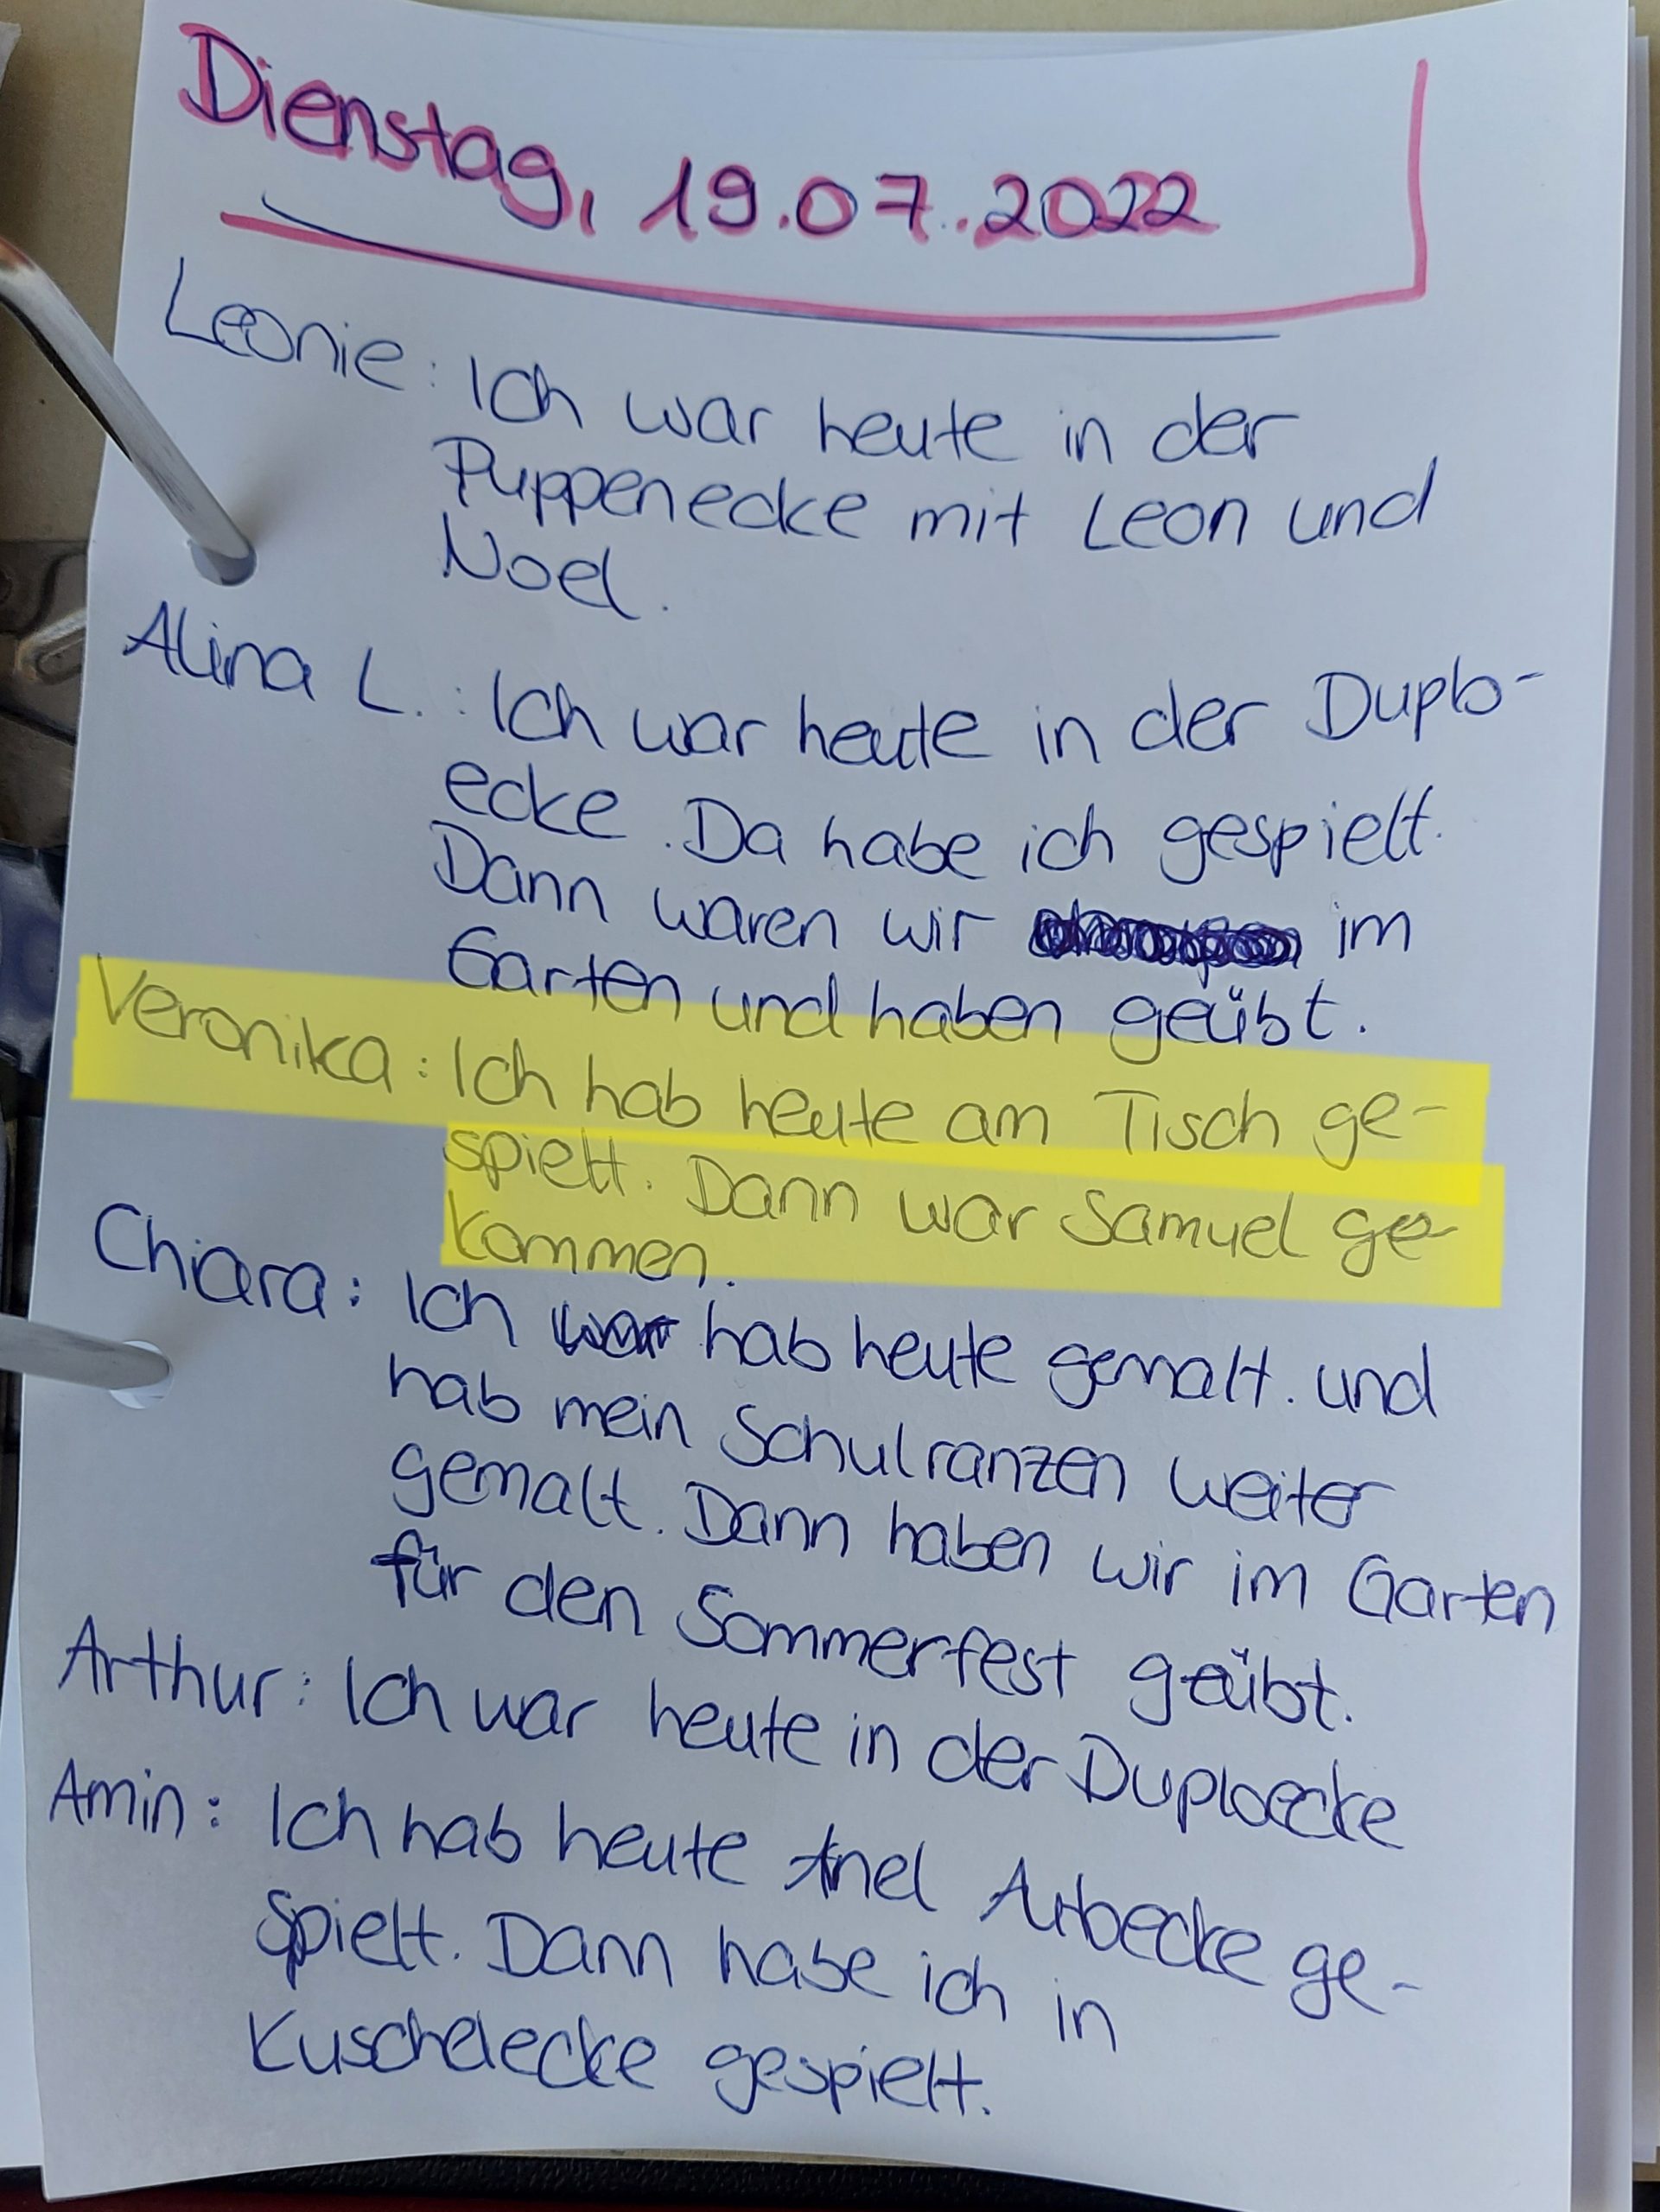 Dienstag, 19.07.2022
Leonie: Ich war heute in der
Puppenecke mit Leon und
Noel.
Alina L.: Ich war heute in der Duplo-
ecke. Da habe ich gespielt.
Dann waren wir im
Garten und haben geübt.
Veronika: Ich hab heute am Tisch ge-
spielt. Dann war Samuel ge-
kommen.
Chiara: Ich war hab heute gemalt. und
hab mein Schulranzen weiter
gemalt. Dann haben wir im Garten
für den Sommerfest geübt.
Arthur: Ich war heute in der Duploecke
Amin: Ich hab heute ge-
spielt. Dann habe ich in
Kuschelecke gespielt.